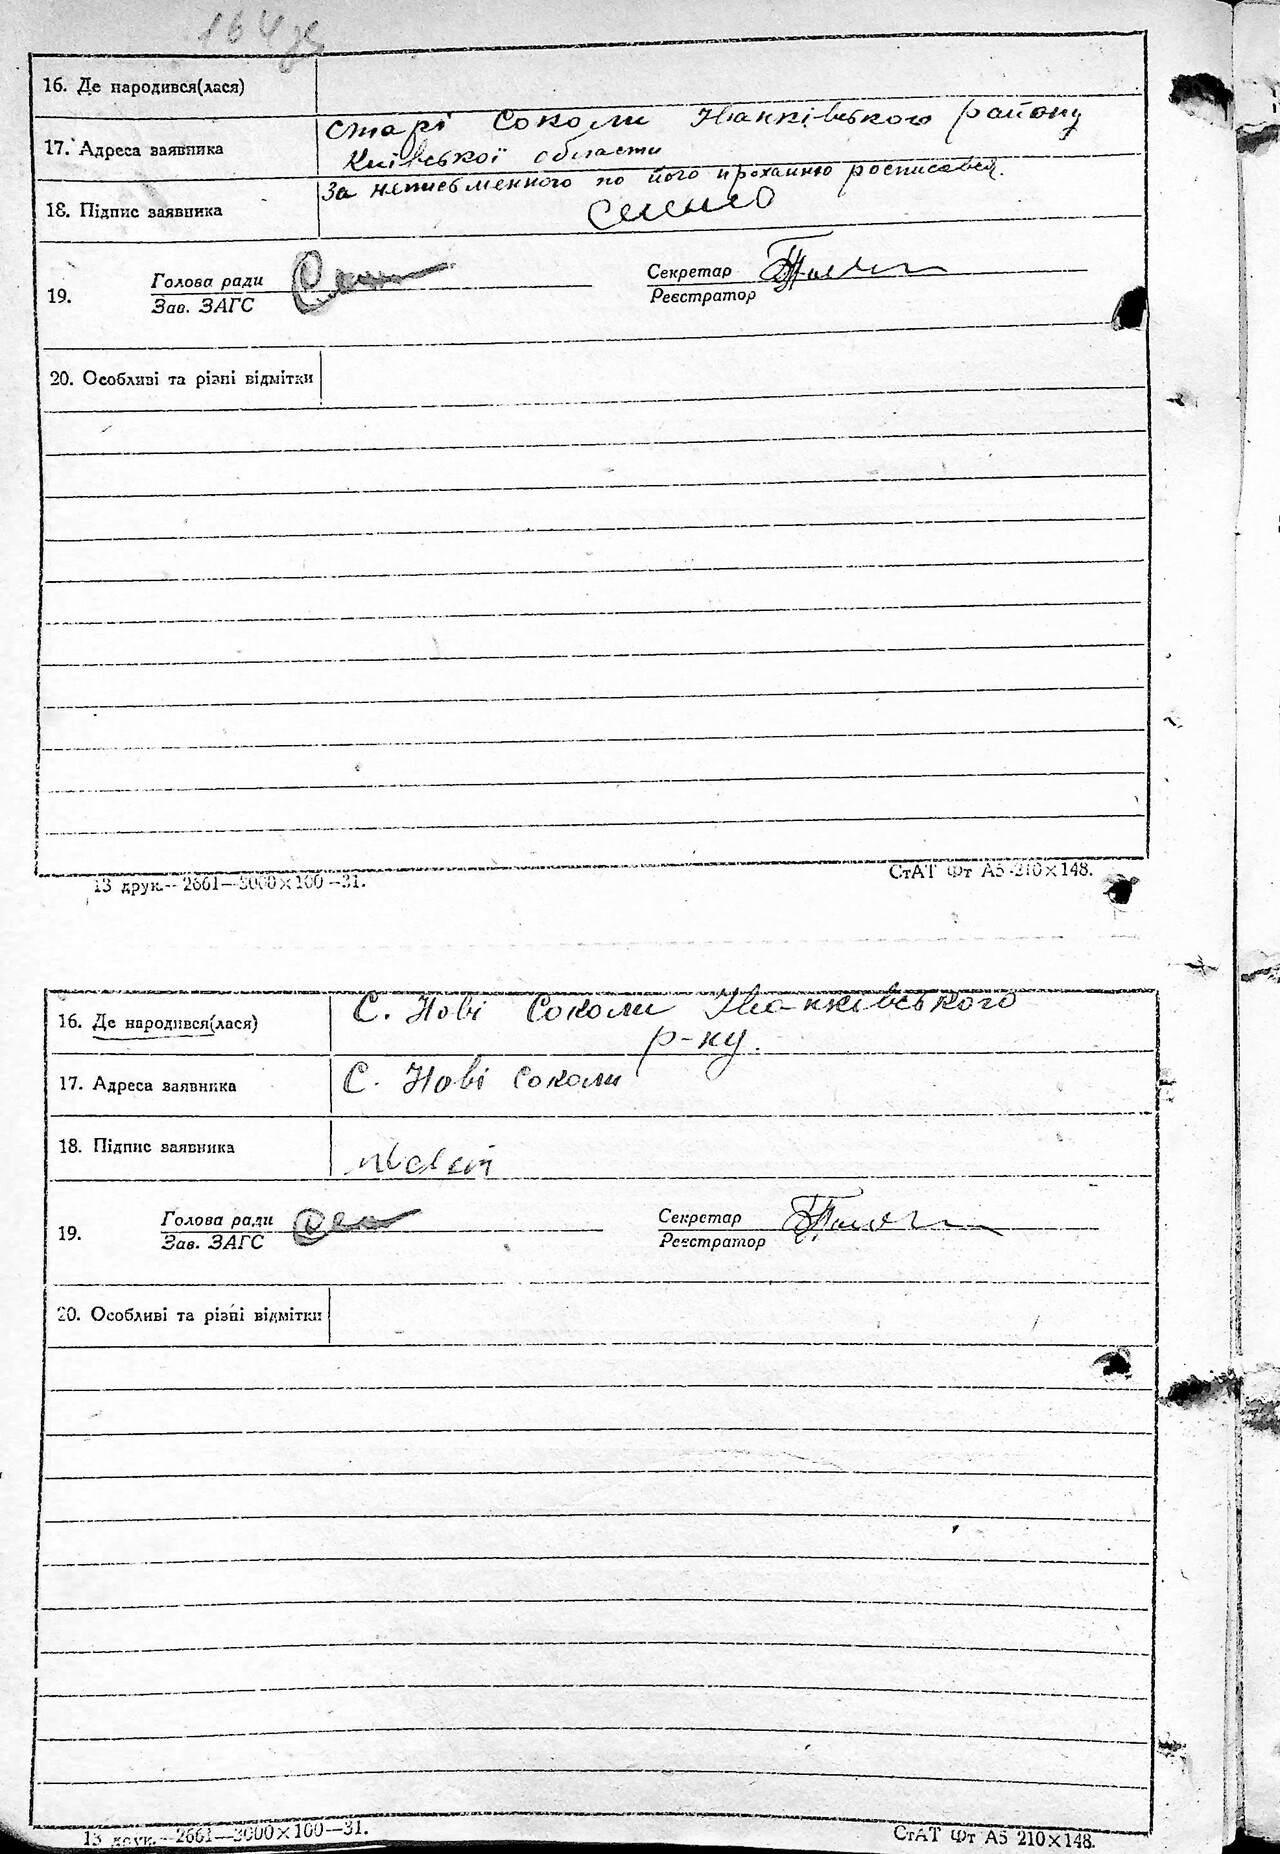 164
16. Де народився(лася)
17. Адреса заявника
Старі Соколи Іванківського району
Київської области
18. Підпис заявника
За неписьменного по його проханню росписався.
19.
Голова ради
Зав. ЗАГС
Секретар
Реєстратор
20. Особливі та різні відмітки
13 друк.—2661—3000×100—31.
СтАТ Фт А5 210×148.
16. Де народився(лася)
С. Нові Соколи Іванківського
р-ну.
17. Адреса заявника
С. Нові Соколи
18. Підпис заявника
19.
Голова ради
Зав. ЗАГС
Секретар
Реєстратор
20. Особливі та різні відмітки
13 друк.—2661—3000×100—31.
СтАТ Фт А5 210×148.